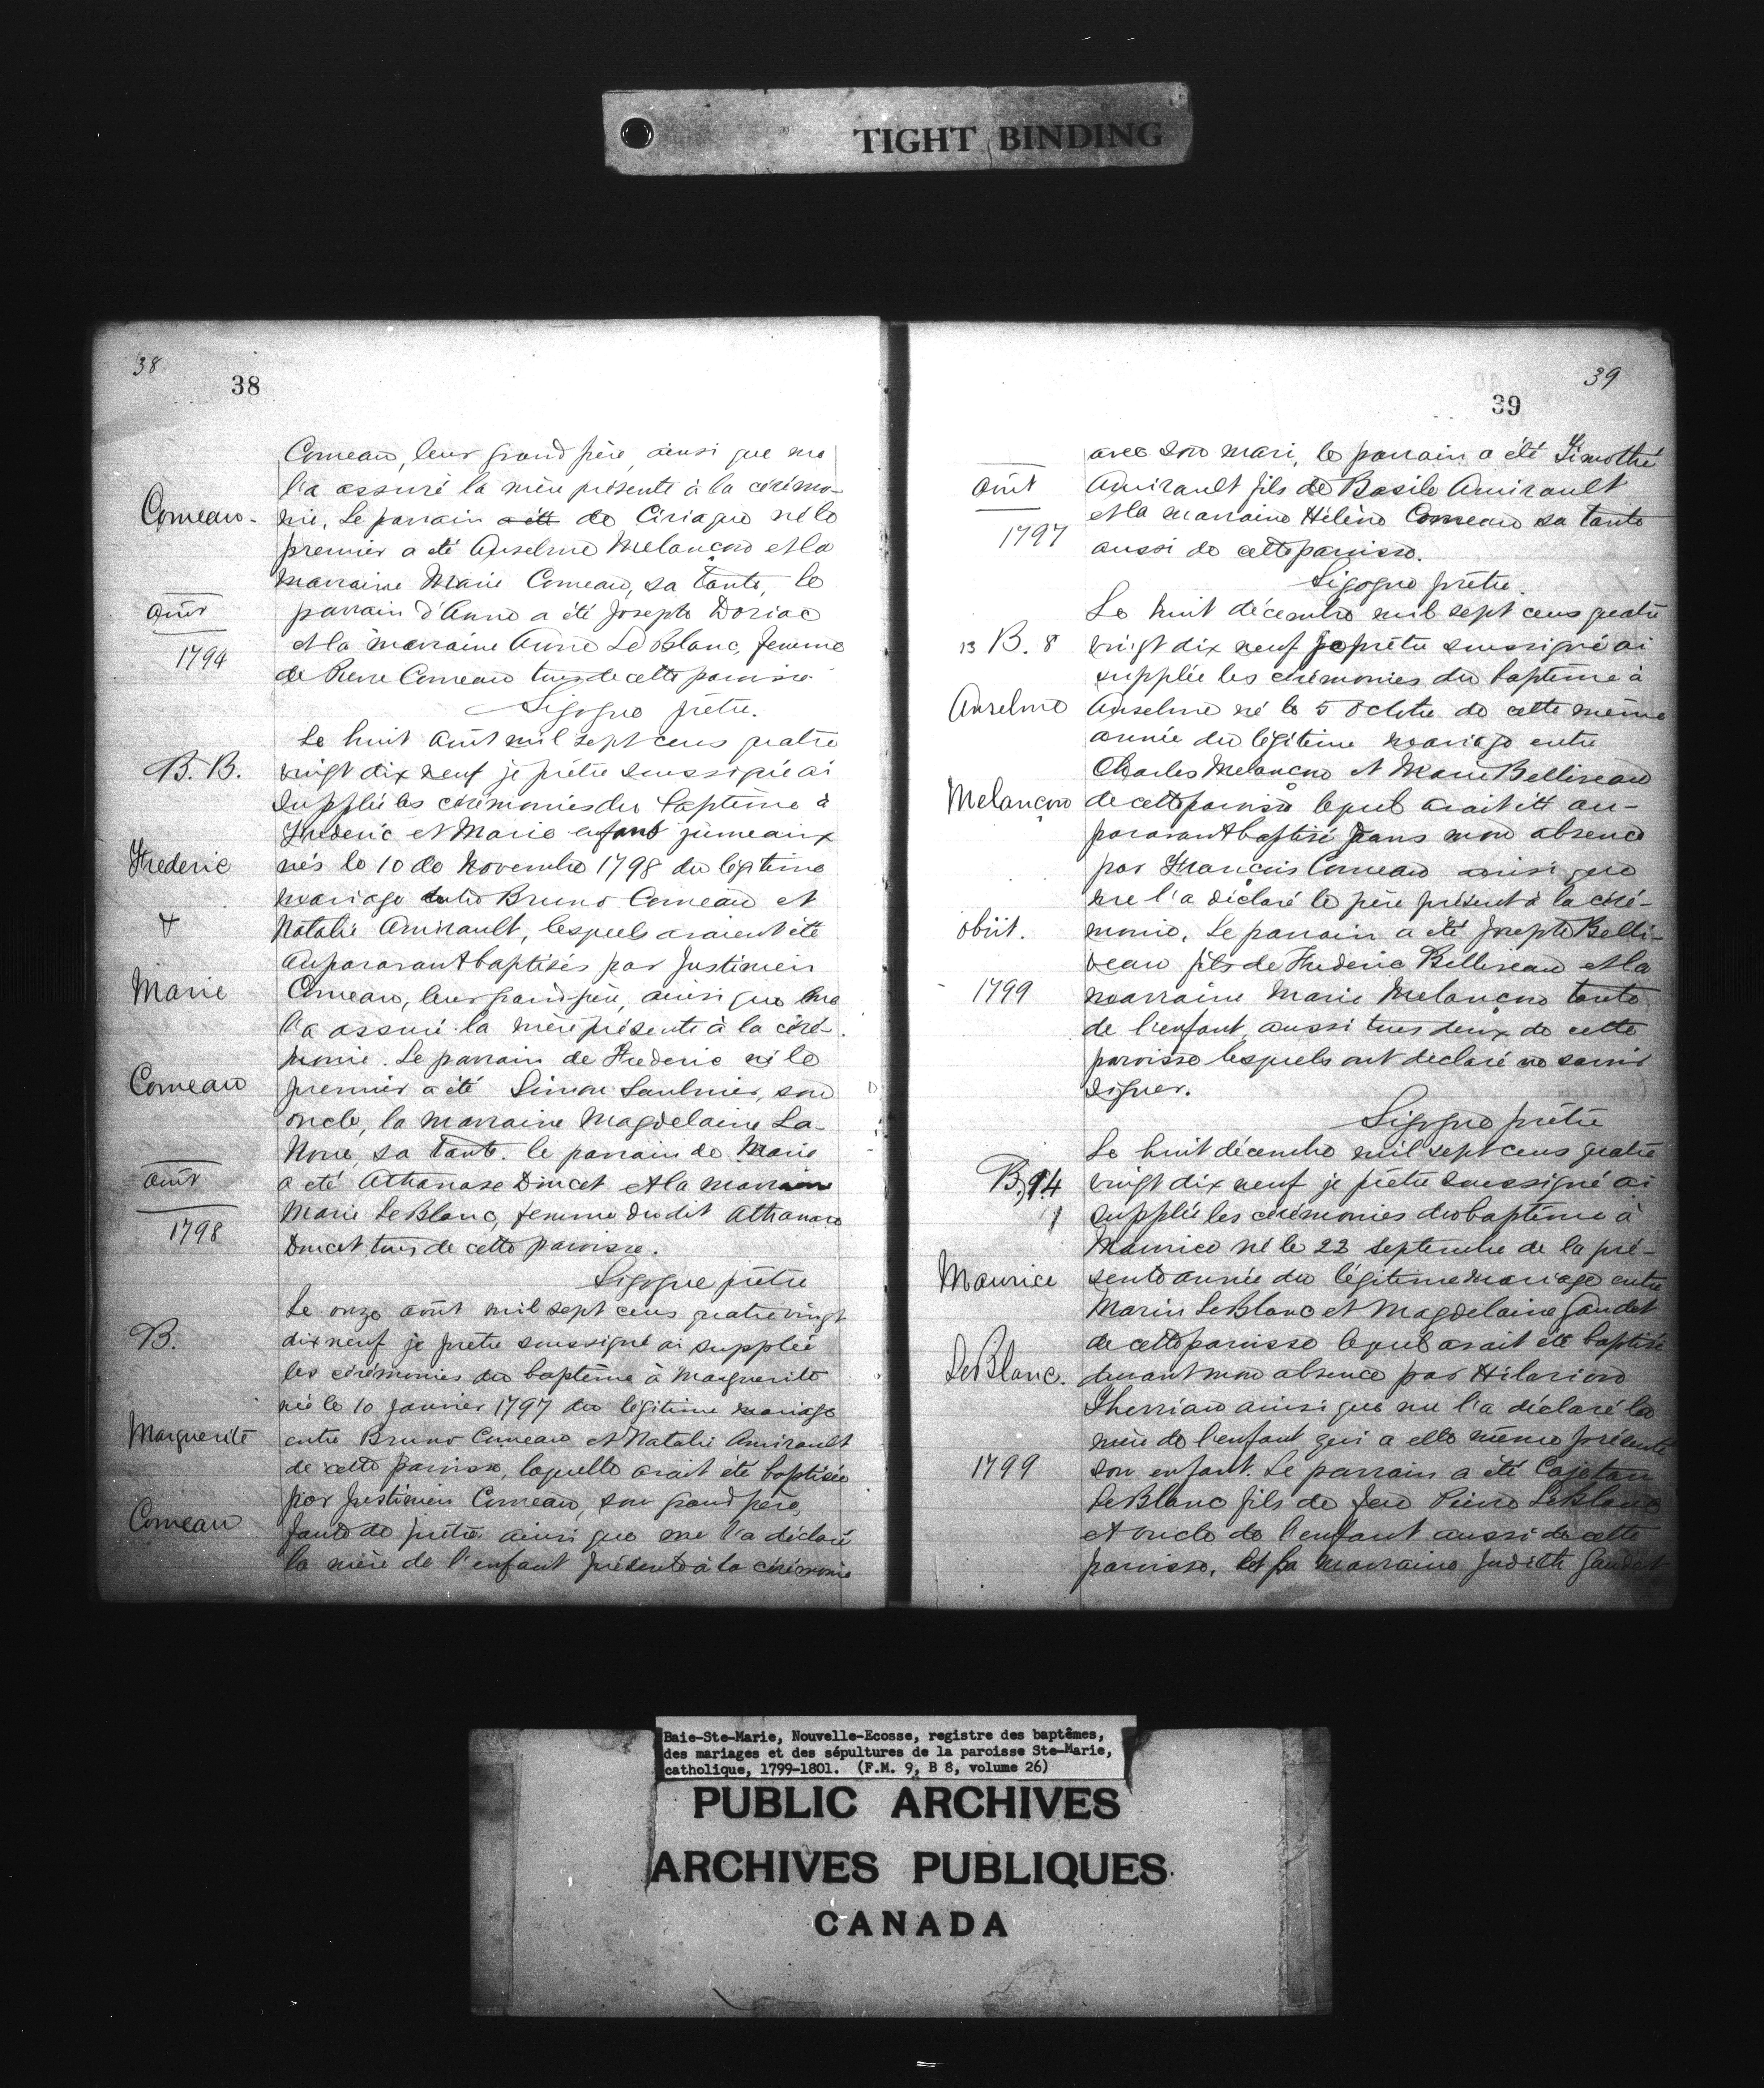 TIGHT BINDING
38
38
Comeau, leur grand père, ainsi que me
l'a assuré la mère présente à la cérémo-
Comeau.
nie. Le parrain a été de Ciriaque né le
premier a été Anselme Melançon et la
marraine Marie Comeau, sa tante, le
août
parrain d'Anne a été Joseph Doriac
1794
et la marraine Anne LeBlanc, femme
de Pierre Comeau tous de cette paroisse.
Sigogne prêtre.
Le huit août mil sept cens quatre
B. B.
vingt dix neuf je prêtre soussigné ai
supplée les cérémonies du baptême à
Frederic et Marie enfant jumeaux
Frederic
nés le 10 de Novembre 1798 du légitime
mariage entre Bruno Comeau et
&
Natalie Amirault, lesquels avaient été
auparavant baptisés par Justinien
Marie
Comeau, leur grand père, ainsi que me
l'a assuré la mère présente à la céré-
monie. Le parrain de Frederic né le
Comeau
premier a été Simon Saulnier, son
oncle, la marraine Magdelaine La-
Noue, sa tante. le parrain de Marie
août
a été Athanase Doucet et la marraine
Marie LeBlanc, femme du dit Athanase
1798
Doucet, tous de cette paroisse.
Sigogne prêtre
Le onze août mil sept cens quatre vingt
B.
dix neuf je pretre soussigné ai supplée
les cérémonies du baptême à Marguerite
née le 10 Janvier 1797 du légitime mariage
Marguerite
entre Bruno Comeau et Natalie Amirault
de cette paroisse, laquelle avait été baptisée
par Justinien Comeau, son grand père,
Comeau
faute de prêtre ainsi que me l'a déclaré
la mère de l'enfant présente à la cérémonie
39
39
avec son mari, le parrain a été Timothé
août
Amirault fils de Basile Amirault
et la marraine Hélène Comeau sa tante
1797
aussi de cette paroisse.
Sigogne prêtre.
Le huit décembre mil sept cens quatre
13 B. 8
vingt dix neuf je prêtre soussigné ai
supplée les cérémonies du baptême à
Anselme
Anselme né le 5 Octobre de cette même
année du légitime mariage entre
Charles Melançon et Marie Belliveau
Melançon
de cette paroisse lequel avait été au-
paravant baptisé dans mon absence
par François Comeau ainsi que
me l'a déclaré le père présent à la céré-
obiit.
monie. Le parrain a été Joseph Belli-
veau fils de Frederic Belliveau et la
1799
marraine Marie Melançon tante
de l'enfant, aussi tous deux de cette
paroisse lesquels ont declaré ne savoir
signer.
Sigogne prêtre
Le huit décembre mil sept cens quatre
B. 14
vingt dix neuf je prêtre soussigné ai
supplée les cérémonies du baptême à
Maurice né le 22 septembre de la pré-
Maurice
sente année du légitime mariage entre
Marin LeBlanc et Magdelaine Gaudet
de cette paroisse lequel avait été baptisé
LeBlanc.
durant mon absence par Hilarion
Therriau ainsi que me l'a déclaré la
mère de l'enfant qui a elle même présenté
1799
son enfant. Le parrain a été Cajetan
LeBlanc fils de feu Pierre LeBlanc
et oncle de l'enfant aussi de cette
paroisse. Et la marraine Judith Gaudet
Baie-Ste-Marie, Nouvelle-Ecosse, registre des baptêmes,
des mariages et des sépultures de la paroisse Ste-Marie,
catholique, 1799-1801. (F.M. 9, B 8, volume 26)
PUBLIC ARCHIVES
ARCHIVES PUBLIQUES
CANADA